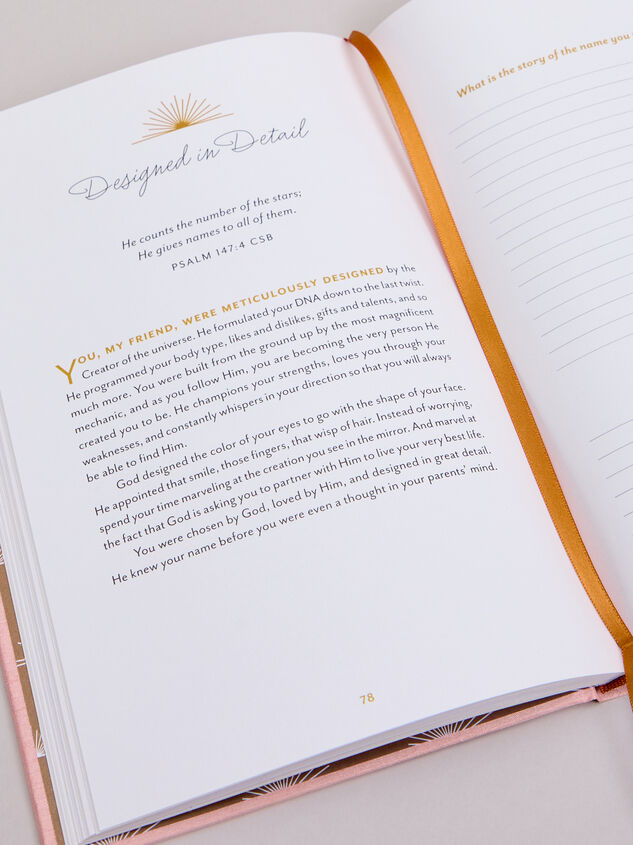 Designed in Detail
He counts the number of the stars;
He gives names to all of them.
PSALM 147:4 CSB
YOU, MY FRIEND, WERE METICULOUSLY DESIGNED by the
Creator of the universe. He formulated your DNA down to the last twist.
He programmed your body type, likes and dislikes, gifts and talents, and so
much more. You were built from the ground up by the most magnificent
mechanic, and as you follow Him, you are becoming the very person He
created you to be. He champions your strengths, loves you through your
weaknesses, and constantly whispers in your direction so that you will always
be able to find Him.
God designed the color of your eyes to go with the shape of your face.
He appointed that smile, those fingers, that wisp of hair. Instead of worrying,
spend your time marveling at the creation you see in the mirror. And marvel at
the fact that God is asking you to partner with Him to live your very best life.
You were chosen by God, loved by Him, and designed in great detail.
He knew your name before you were even a thought in your parents' mind.
78
What is the story of the name you